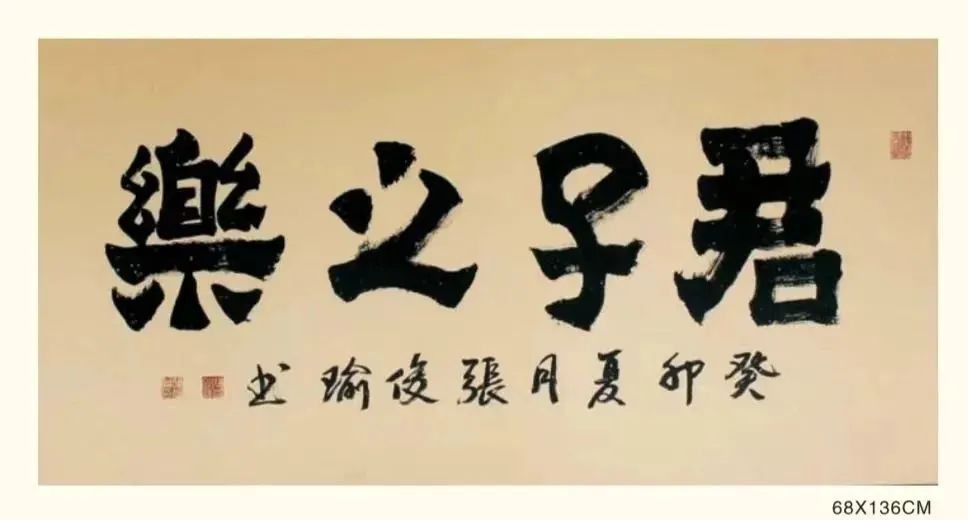 君子之樂
癸卯夏月張俊瑜书
68X136CM